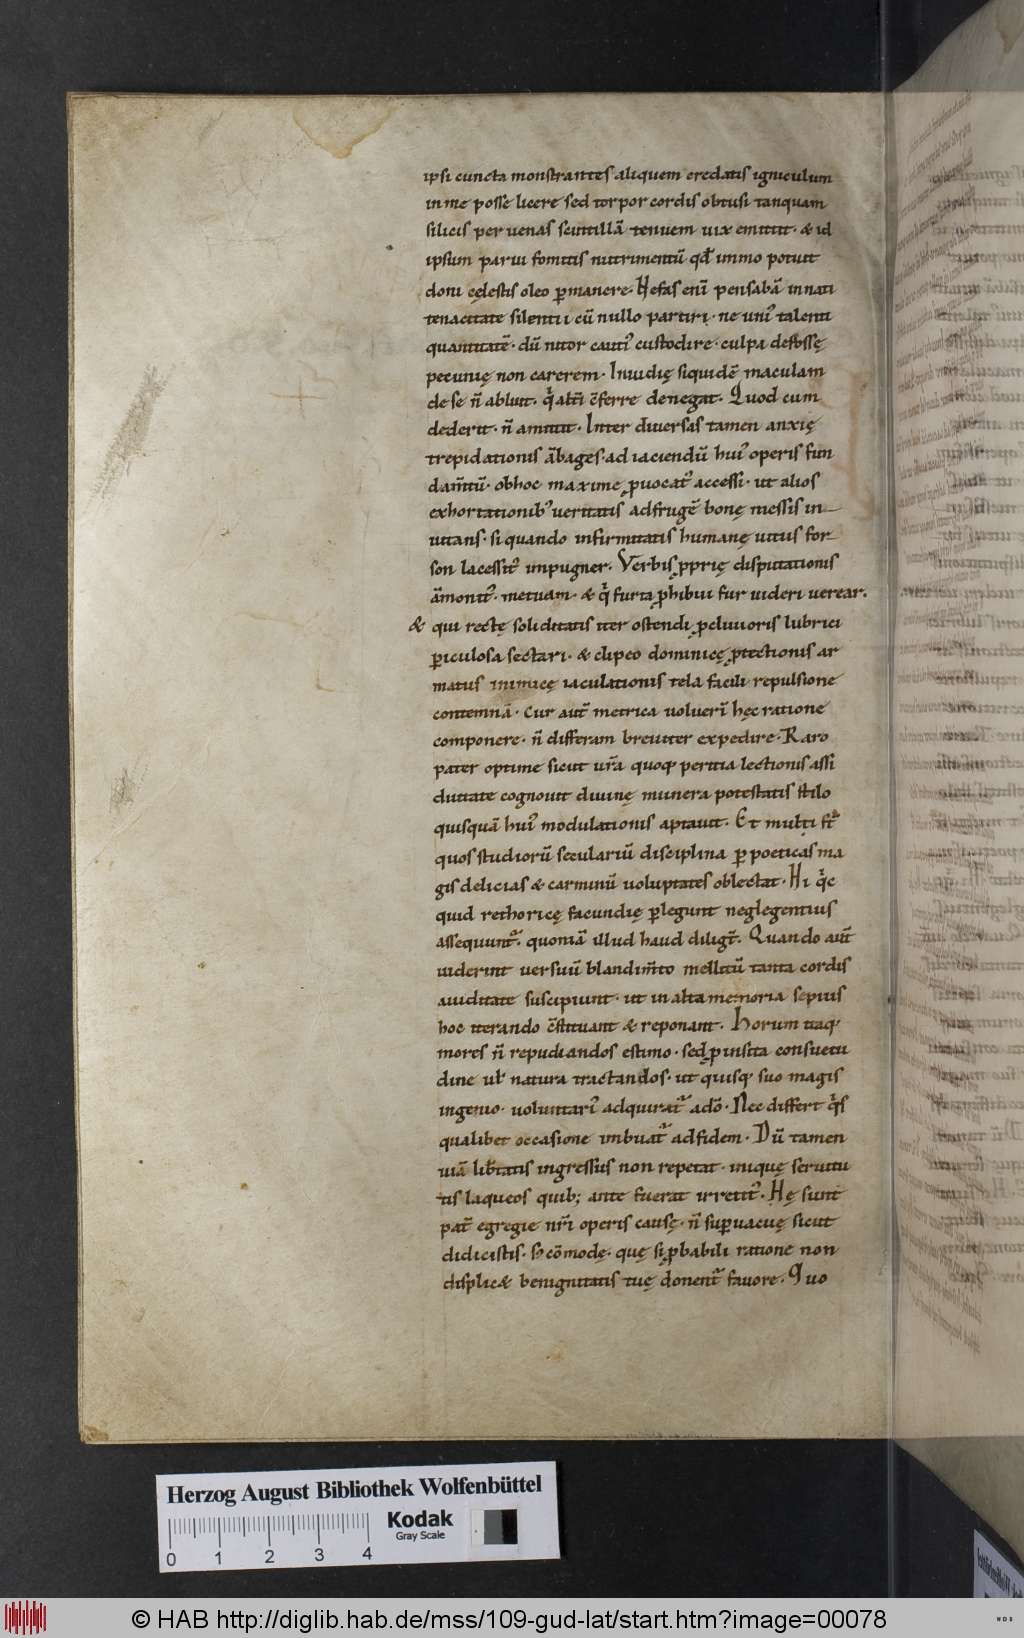 ipsi cuncta monstrantes aliquem credatis igniculum
in me posse licere sed torpor cordis obtusi tanquam
silicis per uenas scintillā tenuem uix emittit · & id
ipsum parui fomitis nutrimentū qđ immo potuit
doni cęlestis oleo ꝑmanere. Nefas enī pensabā innati
tenacitate silentii cū nullo partiri · ne uniꝰ talenti
quantitatē · dū nitor cautiꝰ custodire · culpa defossę
pecunię non carerem. Inuidię siquidē maculam
de se n̄ abluit. q̇ alt̄i c̄ferre denegat. Quod cum
dederit · n̄ amittit. Inter diuersas tamen anxię
trepidationis ābages · ad iaciendū huiꝰ operis fun
dam̄tū · ob hoc maxime ꝓuocatꝰ accessi · ut alios
exhortationibꝰ ueritatis ad frugē bonę messis in-
uitans · si quando infirmitatis humanę uitus for-
son lacessitꝰ inpugner. Verbis ꝓprię disputationis
āmonitꝰ · metuam · & q̇ furta ꝓhibui fur uideri uerear.
& qui rectę soliditatis iter ostendi ꝓcliuioris lubrici
ꝑiculosa sectari · & clipeo dominicę ꝓtectionis ar
matus inimicę iaculationis tela facili repulsione
contemnā · Cur aut̄ metrica uoluerī hęc ratione
componere · n̄ differam breuiter expedire · Raro
pater optime sicut ur̄a quoq; peritia lectionis assi
duitate cognouit diuinę munera potestatis stilo
quisquā huiꝰ modulationis aptauit. Et multi st̄
quos studiorū seculariū disciplina ꝑ poeticas ma
gis delicias & carminū uoluptates oblectat. Hi q̇c
quid rethoricę facundię ꝑlegunt neglegentius
assequunt̄ · quoniā illud haud diligt̄. Quando aut̄
uiderint uersuū blandim̄to mellitū tanta cordis
auiditate suscipiunt · ut in alta memoria sepius
hoc iterando c̄stituant & reponant. Horum itaq;
mores n̄ repudiandos estimo · sed ꝓ insita consuetu
dine uł natura tractandos · ut quisq; suo magis
ingenio · uoluntariꝰ adquirat̄ ad̄o · Nec differt q̇s
qualibet occasione imbuat̄ ad fidem · Dū tamen
uiā lib̄tatis ingressus non repetat · iniquę seruitu
tis laqueos quib; ante fuerat irretitꝰ. Hę sunt
pat̄ egregie nr̄i operis causę · n̄ suꝑuacuę sicut
didicistis · s; cōmodę · quę si ꝓbabili ratione non
displic& benignitatis tuę donent̄ fauore · Quo
Herzog August Bibliothek Wolfenbüttel
Kodak
Gray Scale
0 1 2 3 4
© HAB http://diglib.hab.de/mss/109-gud-lat/start.htm?image=00078